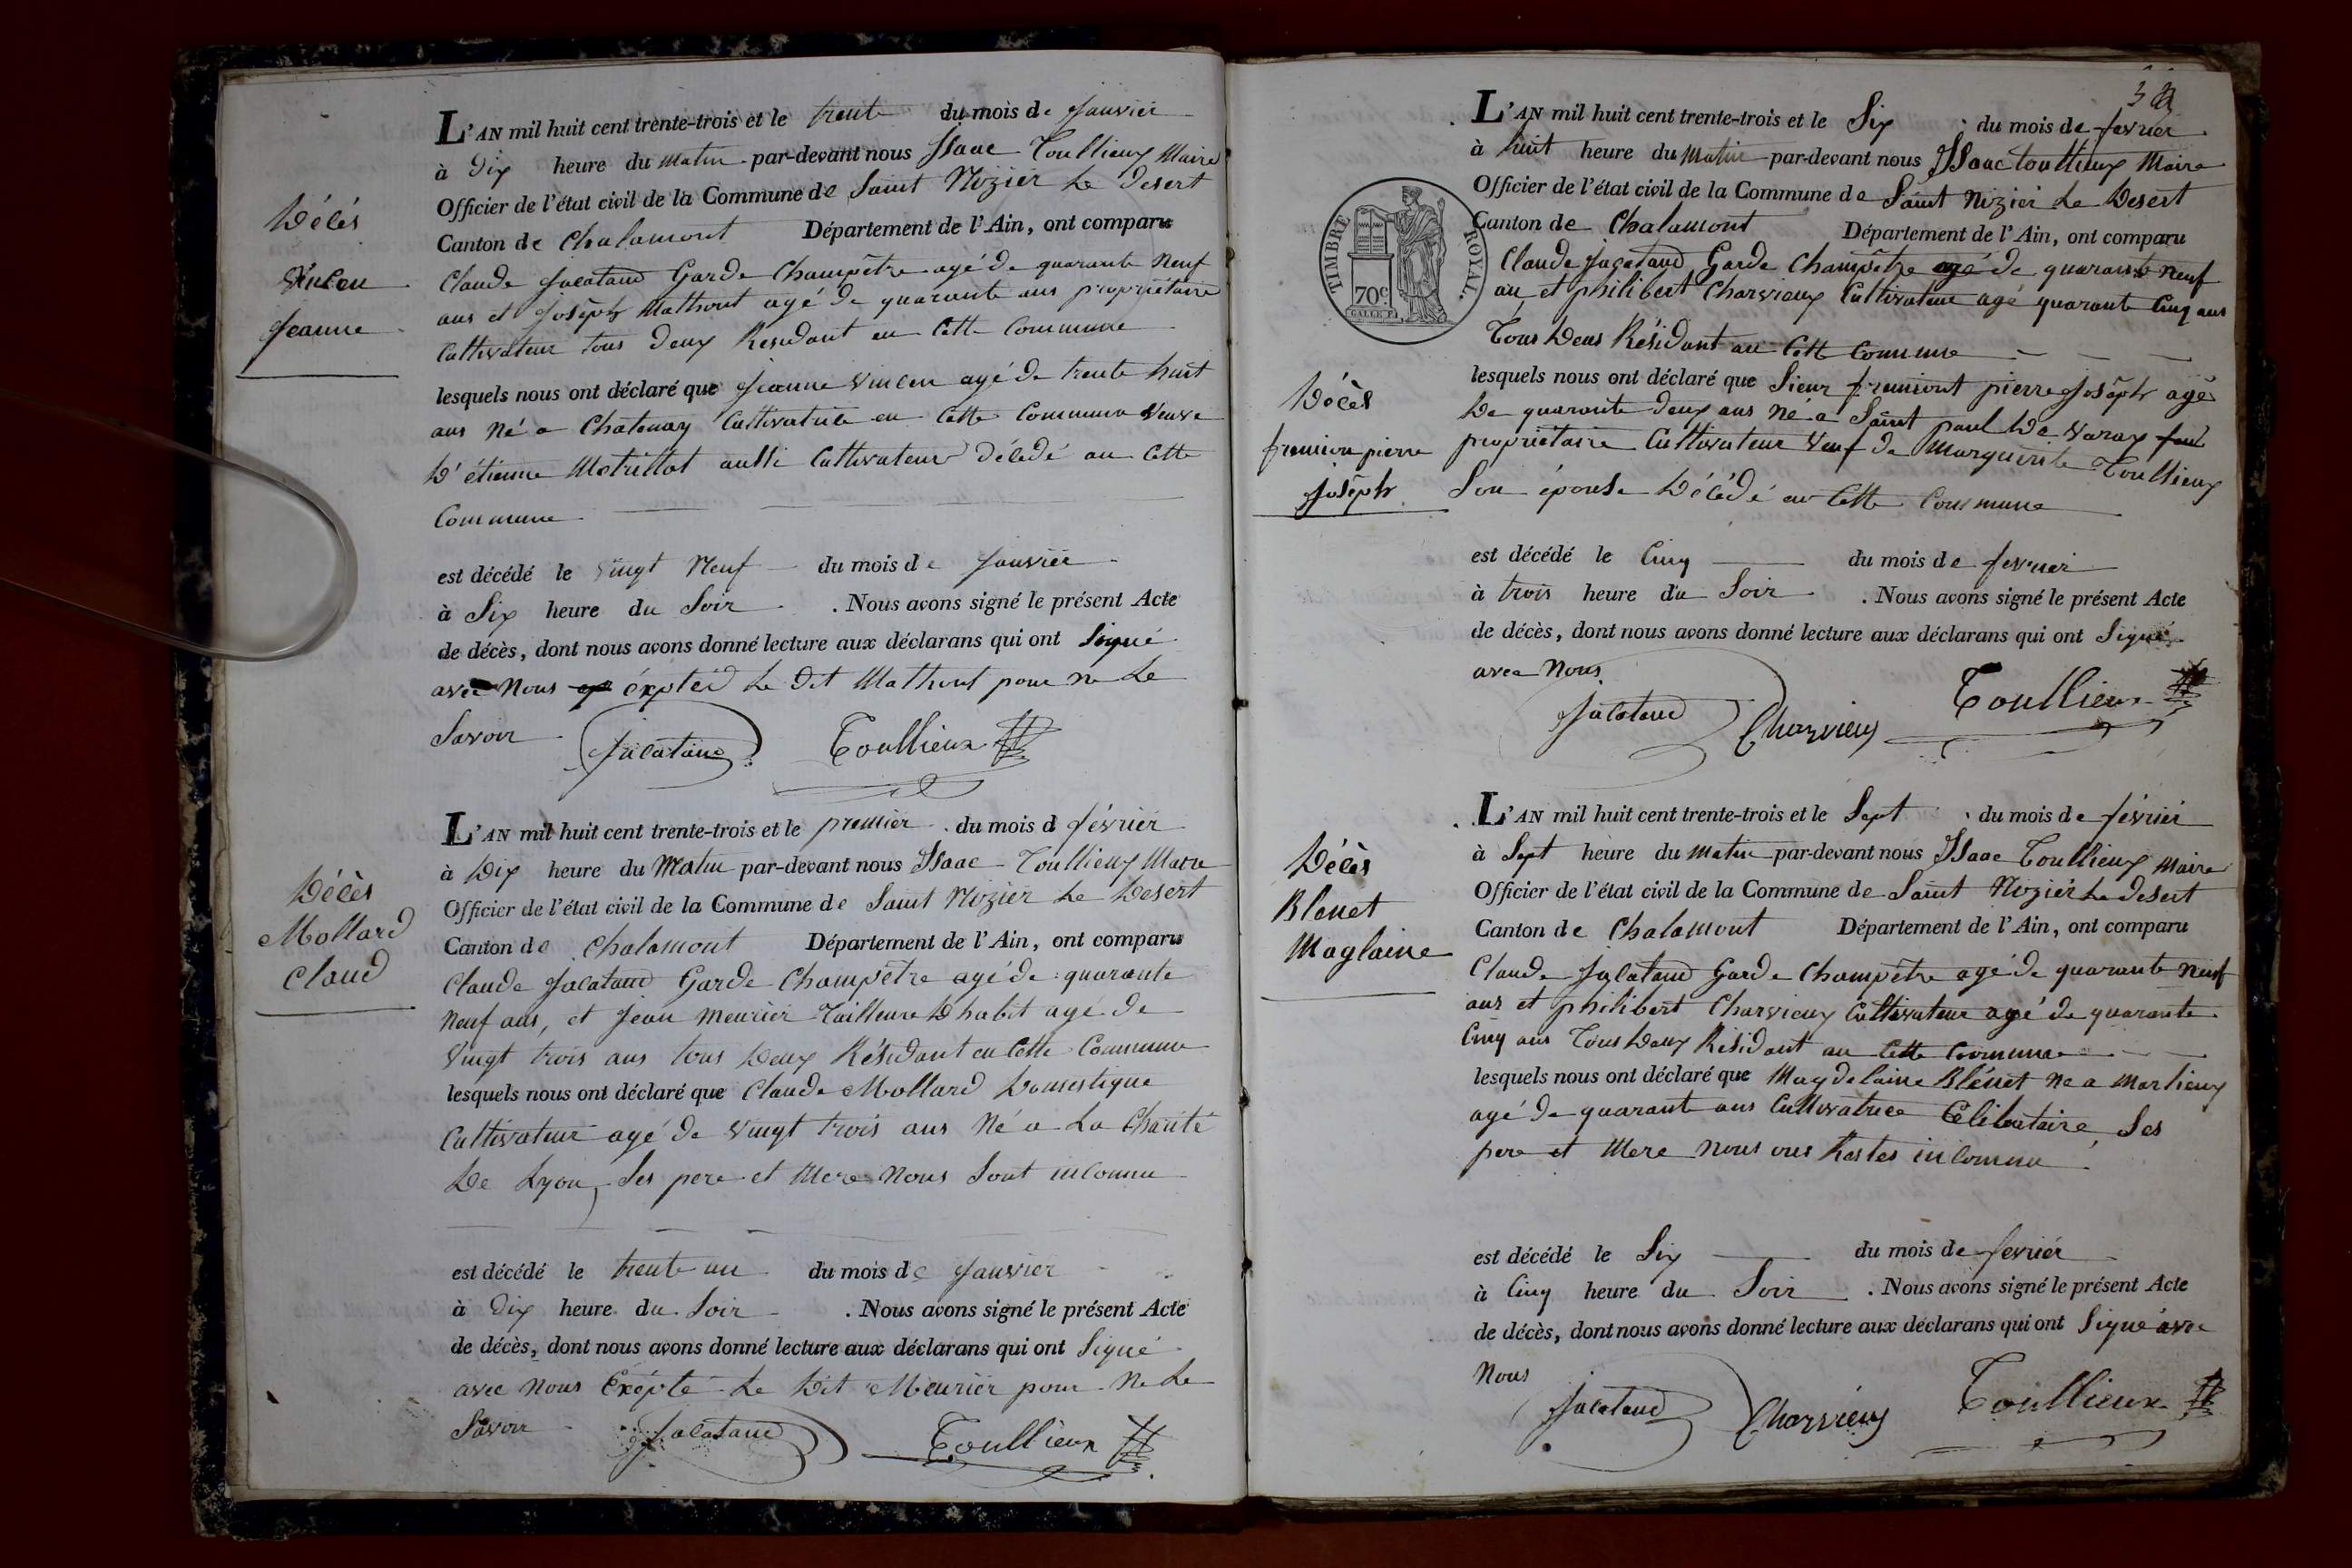 Décés
Vincen
Jeanne
L'AN mil huit cent trente-trois et le trente du mois de Janvier
à Dix heure du matin par-devant nous Isaac Toullieux Maire
Officier de l'état civil de la Commune de Saint Nizier Le Desert
Canton de Chalamont Département de l'Ain, ont comparu
Claude Jacataud Garde Champêtre agé de quarante Neuf
ans et Joseph Mathout agé de quarante ans propriétaire
Cultivateur tous deux Residant en Cette Commune
lesquels nous ont déclaré que Jeanne Vincen agé de trente huit
ans Né a Chatenay Cultivatrice en Cette Commune Veuve
D'étienne Motrillot aussi Cultivateur Décédé au Cette
Commune
est décédé le vingt Neuf du mois de Janvier
à Six heure du Soir . Nous avons signé le présent Acte
de décès, dont nous avons donné lecture aux déclarans qui ont Signé
avec Nous éxpteid Le Dit Mathout pour ne Le
Savoir Jacataud Toullieux
Décès
Mollard
Claud
L'AN mil huit cent trente-trois et le premier du mois d février
à Dix heure du Matin par-devant nous Isaac Toullieux Maire
Officier de l'état civil de la Commune de Saint Nizier Le Desert
Canton de Chalamont Département de l'Ain, ont comparu
Claude Jacataud Garde Champêtre agé de quarante
Neuf ans, et Jean Meurier Tailleure D habit agé de
Vingt trois ans tous Deux Résidant en Cette Commune
lesquels nous ont déclaré que Claude Mollard Domestique
Cultivateur agé de Vingt trois ans Né a La Charité
De Lyon, Ses pere et Mere Nous Sont inconnu
est décédé le trente un du mois de Janvier
à Dix heure du Soir . Nous avons signé le présent Acte
de décès, dont nous avons donné lecture aux déclarans qui ont Signé
avec Nous Exépté Le Dit Meurier pour Ne Le
Savoir Jacataud Toullieux
TIMBRE ROYAL.
70c
Décès
fremion pierre
Joseph
L'AN mil huit cent trente-trois et le Six du mois de fevrier
à huit heure du Matin par-devant nous Isaac Toullieux Maire
Officier de l'état civil de la Commune de Saint Nizier Le Desert
Canton de Chalamont Département de l'Ain, ont comparu
Claude Jacataud Garde Champêtre agé de quarante Neuf
an et philibert Charvieux Cultivateur agé quarante Cinq ans
Tous Deus Résidant au Cette Commune
lesquels nous ont déclaré que Sieur fremiont pierre Joseph agé
De quarante Deux ans Né a Saint paul De Varax
propriétaire Cultivateur Veuf de Marguerite Toullieux
Son épouse Décédé au Cette Commune
est décédé le Cinq du mois de fevrier
à trois heure du Soir . Nous avons signé le présent Acte
de décès, dont nous avons donné lecture aux déclarans qui ont Signé
avec Nous
Jacataud Charvieux Toullieux
Décès
Blenet
Maglaine
L'AN mil huit cent trente-trois et le Sept du mois de février
à Sept heure du Matin par-devant nous Isaac Toullieux Maire
Officier de l'état civil de la Commune de Saint Nizier Le desert
Canton de Chalamont Département de l'Ain, ont comparu
Claude Jacataud Garde Champêtre agé de quarante Neuf
ans et philibert Charvieux Cultivateur agé de quarante
Cinq ans Tous Deux Résidant au Cette Commune
lesquels nous ont déclaré que Magdelaine Blénet Né a Marlieux
agé de quarant ans Cultivatrice Célibataire, Ses
pere et Mere nous ons Restes inconnu
est décédé le Six du mois de fevriér
à Cinq heure du Soir . Nous avons signé le présent Acte
de décès, dont nous avons donné lecture aux déclarans qui ont Signé avec
Nous
Jacataud Charvieux Toullieux